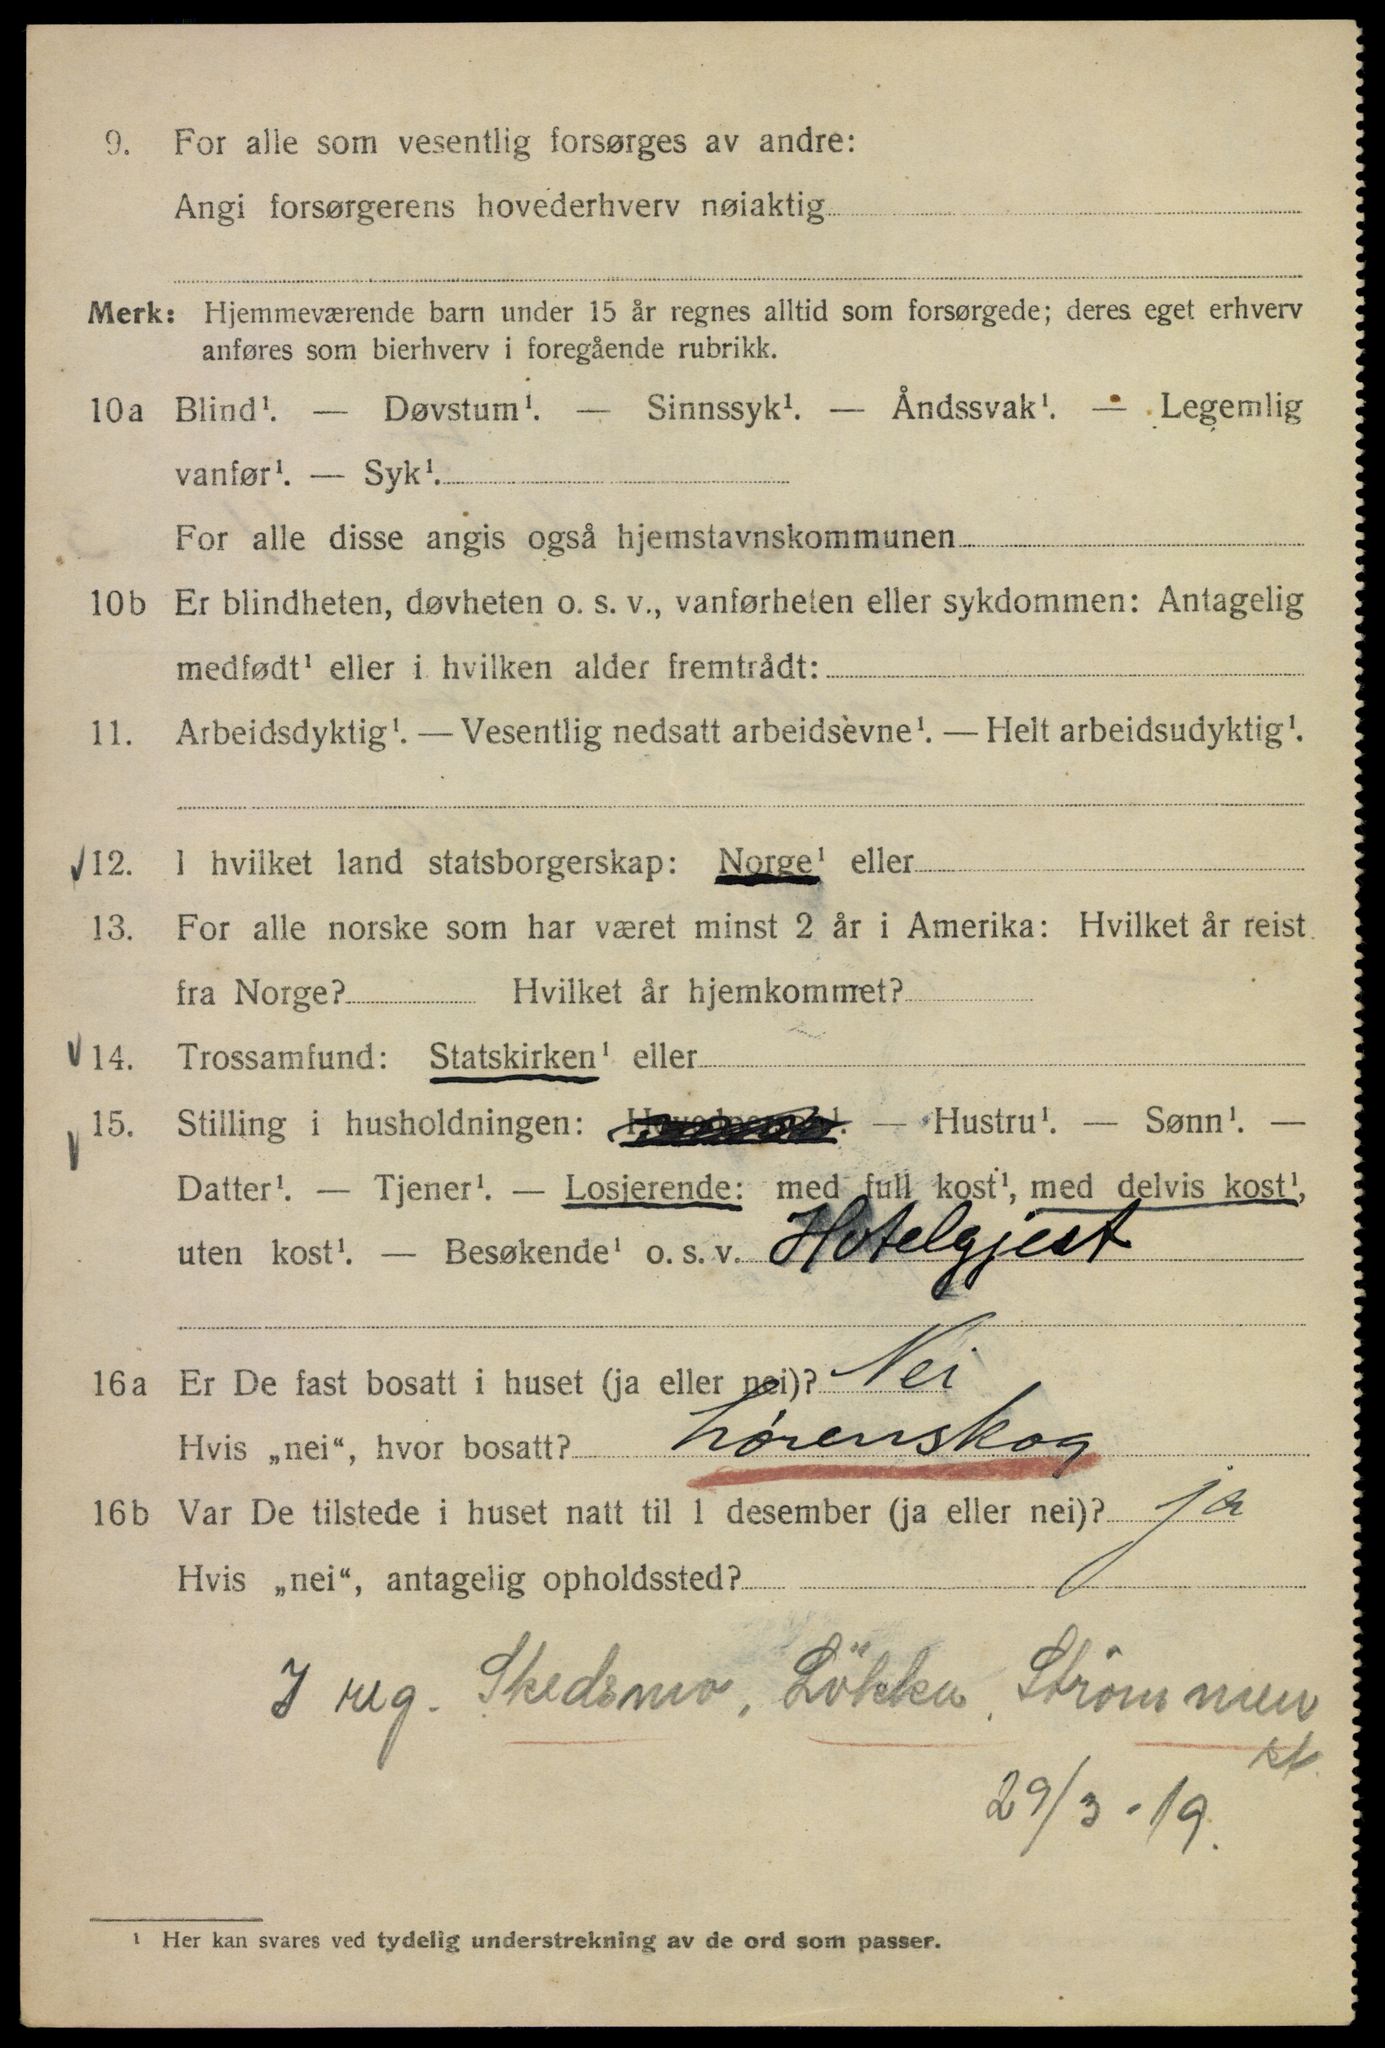 9. For alle som vesentlig forsørges av andre:
Angi forsørgerens hovederhverv nøiaktig
Merk: Hjemmeværende barn under 15 år regnes alltid som forsørgede; deres eget erhverv
anføres som bierhverv i foregående rubrikk.
10a Blind¹. — Døvstum¹. — Sinnssyk¹. — Åndssvak¹. — Legemlig
vanfør¹. — Syk¹.
For alle disse angis også hjemstavnskommunen
10b Er blindheten, døvheten o. s. v., vanførheten eller sykdommen: Antagelig
medfødt¹ eller i hvilken alder fremtrådt:
11. Arbeidsdyktig¹. — Vesentlig nedsatt arbeidsevne¹. — Helt arbeidsudyktig¹.
12. I hvilket land statsborgerskap: Norge¹ eller
13. For alle norske som har været minst 2 år i Amerika: Hvilket år reist
fra Norge? Hvilket år hjemkommet?
14. Trossamfund: Statskirken¹ eller
15. Stilling i husholdningen: — Hustru¹. — Sønn¹. —
Datter¹. — Tjener¹. — Losjerende: med full kost¹, med delvis kost¹,
uten kost¹. — Besøkende¹ o. s. v. Hotelgjest
16a Er De fast bosatt i huset (ja eller nei)? Nei
Hvis „nei“, hvor bosatt? Lørenskog
16b Var De tilstede i huset natt til 1 desember (ja eller nei)? ja
Hvis „nei“, antagelig opholdssted?
I reg. Skedsmo, Lökka, Strömmen
st.
29/3 - 19.
¹ Her kan svares ved tydelig understrekning av de ord som passer.